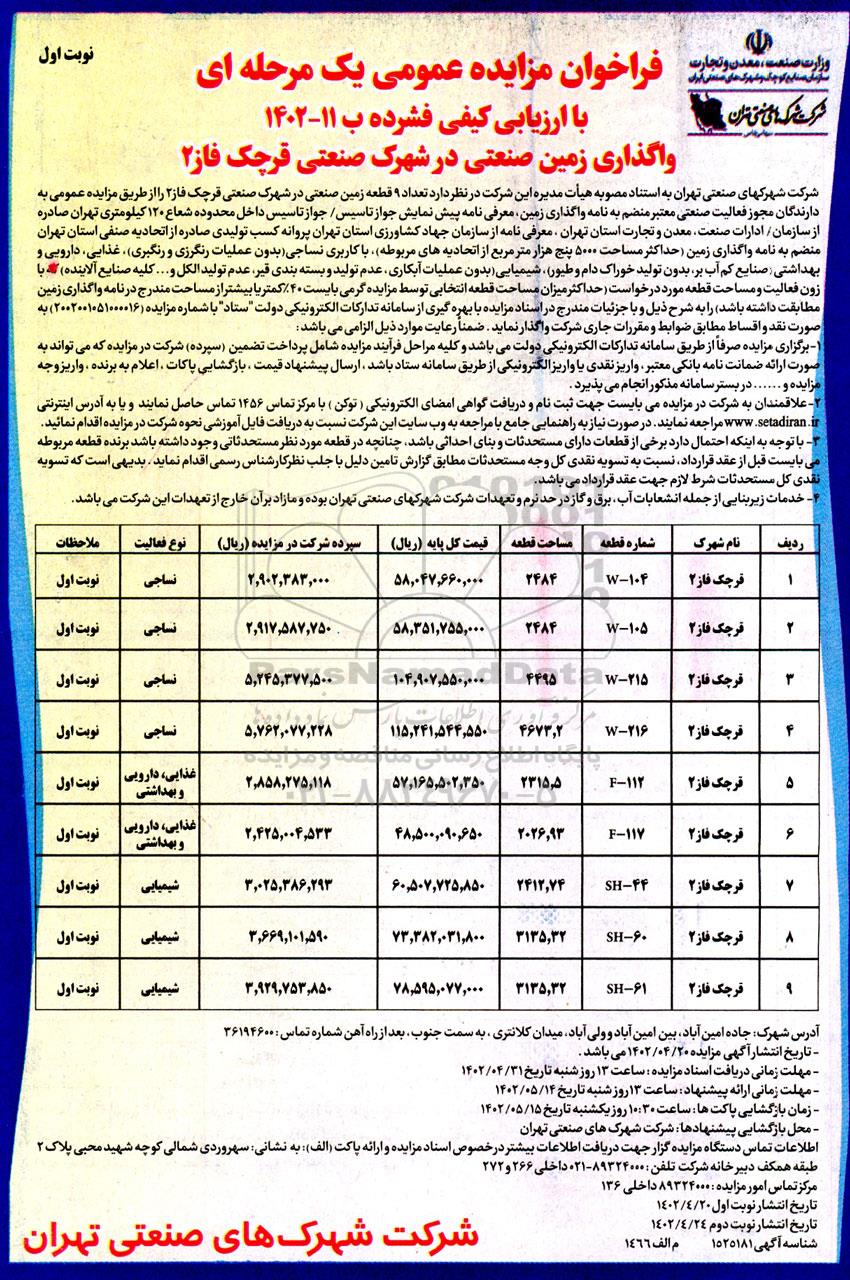 نوبت اول
وزارت صنعت، معدن و تجارت
سازمان صنایع کوچک و شهرک‌های صنعتی ایران
شرکت شهرک‌های صنعتی تهران
فراخوان مزایده عمومی یک مرحله ای
با ارزیابی کیفی فشرده ب ۱۱-۱۴۰۲
واگذاری زمین صنعتی در شهرک صنعتی قرچک فاز۲
شرکت شهرکهای صنعتی تهران به استناد مصوبه هیأت مدیره این شرکت در نظر دارد تعداد ۹ قطعه زمین صنعتی در شهرک صنعتی قرچک فاز۲ را از طریق مزایده عمومی به
دارندگان مجوز فعالیت صنعتی معتبر منضم به نامه واگذاری زمین، معرفی نامه پیش نمایش جواز تاسیس/ جواز تاسیس داخل محدوده شعاع ۱۲۰ کیلومتری تهران صادره
از سازمان/ ادارات صنعت، معدن و تجارت استان تهران ، معرفی نامه از سازمان جهاد کشاورزی استان تهران پروانه کسب تولیدی صادره از اتحادیه صنفی استان تهران
منضم به نامه واگذاری زمین (حداکثر مساحت ۵۰۰۰ پنج هزار متر مربع از اتحادیه های مربوطه)، با کاربری نساجی(بدون عملیات رنگرزی و رنگبری)، غذایی، دارویی و
بهداشتی( صنایع کم آب بر، بدون تولید خوراک دام و طیور)، شیمیایی(بدون عملیات آبکاری، عدم تولید و بسته بندی قیر، عدم تولید الکل و... کلیه صنایع آلاینده) با
زون فعالیت و مساحت قطعه مورد درخواست (حداکثر میزان مساحت قطعه انتخابی توسط مزایده گر می بایست ۴۰٪ کمتر یا بیشتر از مساحت مندرج در نامه واگذاری زمین
مطابقت داشته باشد) را به شرح ذیل و با جزئیات مندرج در اسناد مزایده با بهره گیری از سامانه تدارکات الکترونیکی دولت "ستاد" با شماره مزایده (۲۰۰۲۰۰۱۰۵۱۰۰۰۰۱۶) به
صورت نقد و اقساط مطابق ضوابط و مقررات جاری شرکت واگذار نماید . ضمناً رعایت موارد ذیل الزامی می باشد :
۱-برگزاری مزایده صرفاً از طریق سامانه تدارکات الکترونیکی دولت می باشد و کلیه مراحل فرآیند مزایده شامل پرداخت تضمین (سپرده) شرکت در مزایده که می تواند به
صورت ارائه ضمانت نامه بانکی معتبر ، واریز نقدی یا واریز الکترونیکی از طریق سامانه ستاد باشد ، ارسال پیشنهاد قیمت ، بازگشایی پاکات ، اعلام به برنده ، واریز وجه
مزایده و ...... در بستر سامانه مذکور انجام می پذیرد .
۲-علاقمندان به شرکت در مزایده می بایست جهت ثبت نام و دریافت گواهی امضای الکترونیکی ( توکن ) با مرکز تماس ۱۴۵۶ تماس حاصل نمایند و یا به آدرس اینترنتی
www.setadiran.ir مراجعه نمایند. در صورت نیاز به راهنمایی جامع با مراجعه به وب سایت این شرکت نسبت به دریافت فایل آموزشی نحوه شرکت در مزایده اقدام نمائید.
۳- با توجه به اینکه احتمال دارد برخی از قطعات دارای مستحدثات و بنای احداثی باشد، چنانچه در قطعه مورد نظر مستحدثاتی وجود داشته باشد برنده قطعه مربوطه
می بایست قبل از عقد قرارداد، نسبت به تسویه نقدی کل وجه مستحدثات مطابق گزارش تامین دلیل با جلب نظر کارشناس رسمی اقدام نماید . بدیهی است که تسویه
نقدی کل مستحدثات شرط لازم جهت عقد قرارداد می باشد.
۴- خدمات زیربنایی از جمله انشعابات آب ، برق و گاز در حد نرم و تعهدات شرکت شهرکهای صنعتی تهران بوده و مازاد بر آن خارج از تعهدات این شرکت می باشد.
ردیف نام شهرک شماره قطعه مساحت قطعه قیمت کل پایه (ریال) سپرده شرکت در مزایده (ریال) نوع فعالیت ملاحظات
۱ قرچک فاز۲ W-۱۰۴ ۲۴۸۴ ۵۸,۰۴۷,۶۶۰,۰۰۰ ۲,۹۰۲,۳۸۳,۰۰۰ نساجی نوبت اول
۲ قرچک فاز۲ W-۱۰۵ ۲۴۸۴ ۵۸,۳۵۱,۷۵۵,۰۰۰ ۲,۹۱۷,۵۸۷,۷۵۰ نساجی نوبت اول
۳ قرچک فاز۲ W-۲۱۵ ۴۴۹۵ ۱۰۴,۹۰۷,۵۵۰,۰۰۰ ۵,۲۴۵,۳۷۷,۵۰۰ نساجی نوبت اول
۴ قرچک فاز۲ W-۲۱۶ ۴۶۷۳,۲ ۱۱۵,۲۴۱,۵۴۴,۵۵۰ ۵,۷۶۲,۰۷۷,۲۲۸ نساجی نوبت اول
۵ قرچک فاز۲ F-۱۱۲ ۲۳۱۵,۵ ۵۷,۱۶۵,۵۰۲,۳۵۰ ۲,۸۵۸,۲۷۵,۱۱۸ غذایی، دارویی و بهداشتی نوبت اول
۶ قرچک فاز۲ F-۱۱۷ ۲۰۲۶,۹۳ ۴۸,۵۰۰,۰۹۰,۶۵۰ ۲,۴۲۵,۰۰۴,۵۳۳ غذایی، دارویی و بهداشتی نوبت اول
۷ قرچک فاز۲ SH-۴۴ ۲۴۱۲,۷۴ ۶۰,۵۰۷,۷۲۵,۸۵۰ ۳,۰۲۵,۳۸۶,۲۹۳ شیمیایی نوبت اول
۸ قرچک فاز۲ SH-۶۰ ۳۱۳۵,۳۲ ۷۳,۳۸۲,۰۳۱,۸۰۰ ۳,۶۶۹,۱۰۱,۵۹۰ شیمیایی نوبت اول
۹ قرچک فاز۲ SH-۶۱ ۳۱۳۵,۳۲ ۷۸,۵۹۵,۰۷۷,۰۰۰ ۳,۹۲۹,۷۵۳,۸۵۰ شیمیایی نوبت اول
ParsNamadData
پایگاه اطلاع رسانی مناقصه و مزایده
۰۲۱-۸۸۳۴۹۶۷۰-۵
آدرس شهرک: جاده امین آباد، بین امین آباد و ولی آباد، میدان کلانتری ، به سمت جنوب، بعد از راه آهن شماره تماس : ۳۶۱۹۴۶۰۰
- تاریخ انتشار آگهی مزایده ۱۴۰۲/۰۴/۲۰ می باشد .
- مهلت زمانی دریافت اسناد مزایده : ساعت ۱۳ روز شنبه تاریخ ۱۴۰۲/۰۴/۳۱
- مهلت زمانی ارائه پیشنهاد : ساعت ۱۳ روز شنبه تاریخ ۱۴۰۲/۰۵/۱۴
- زمان بازگشایی پاکت ها : ساعت ۱۰:۳۰ روز یکشنبه تاریخ ۱۴۰۲/۰۵/۱۵
- محل بازگشایی پیشنهادها: شرکت شهرک های صنعتی تهران
اطلاعات تماس دستگاه مزایده گزار جهت دریافت اطلاعات بیشتر در خصوص اسناد مزایده و ارائه پاکت (الف): به نشانی: سهروردی شمالی کوچه شهید محبی پلاک ۲
طبقه همکف دبیر خانه شرکت تلفن : ۸۹۳۲۴۰۰۰-۰۲۱ داخلی ۲۶۶ و ۲۷۲
مرکز تماس امور مزایده : ۸۹۳۲۴۰۰۰ داخلی ۱۳۶
تاریخ انتشار نوبت اول ۱۴۰۲/۴/۲۰
تاریخ انتشار نوبت دوم ۱۴۰۲/۴/۲۴
شناسه آگهی ۱۵۲۵۱۸۱ م الف ۱۴۶۶
شرکت شهرک‌های صنعتی تهران